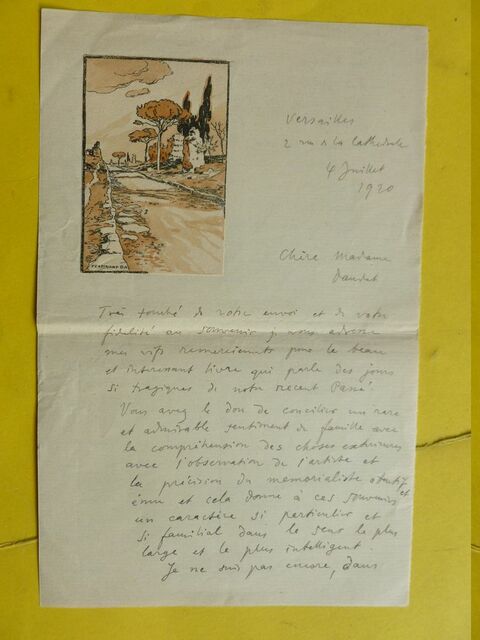 FERDINAND BAC
Versailles
2 rue de la Cathédrale
4 Juillet
1920
Chère Madame
Daudet
Très touché de votre envoi et de votre
fidélité au souvenir je vous adresse
mes vifs remerciements pour le beau
et intéressant livre qui parle des jours
si tragiques de notre récent Passé.
Vous avez le don de concilier un rare
et admirable sentiment de famille avec
la compréhension des choses extérieures
avec l'observation de l'artiste et
la précision du memorialiste attentif et
ému et cela donne à ces souvenirs
un caractère si particulier et
si familial dans le sens le plus
large et le plus intelligent.
Je ne suis pas encore, dans